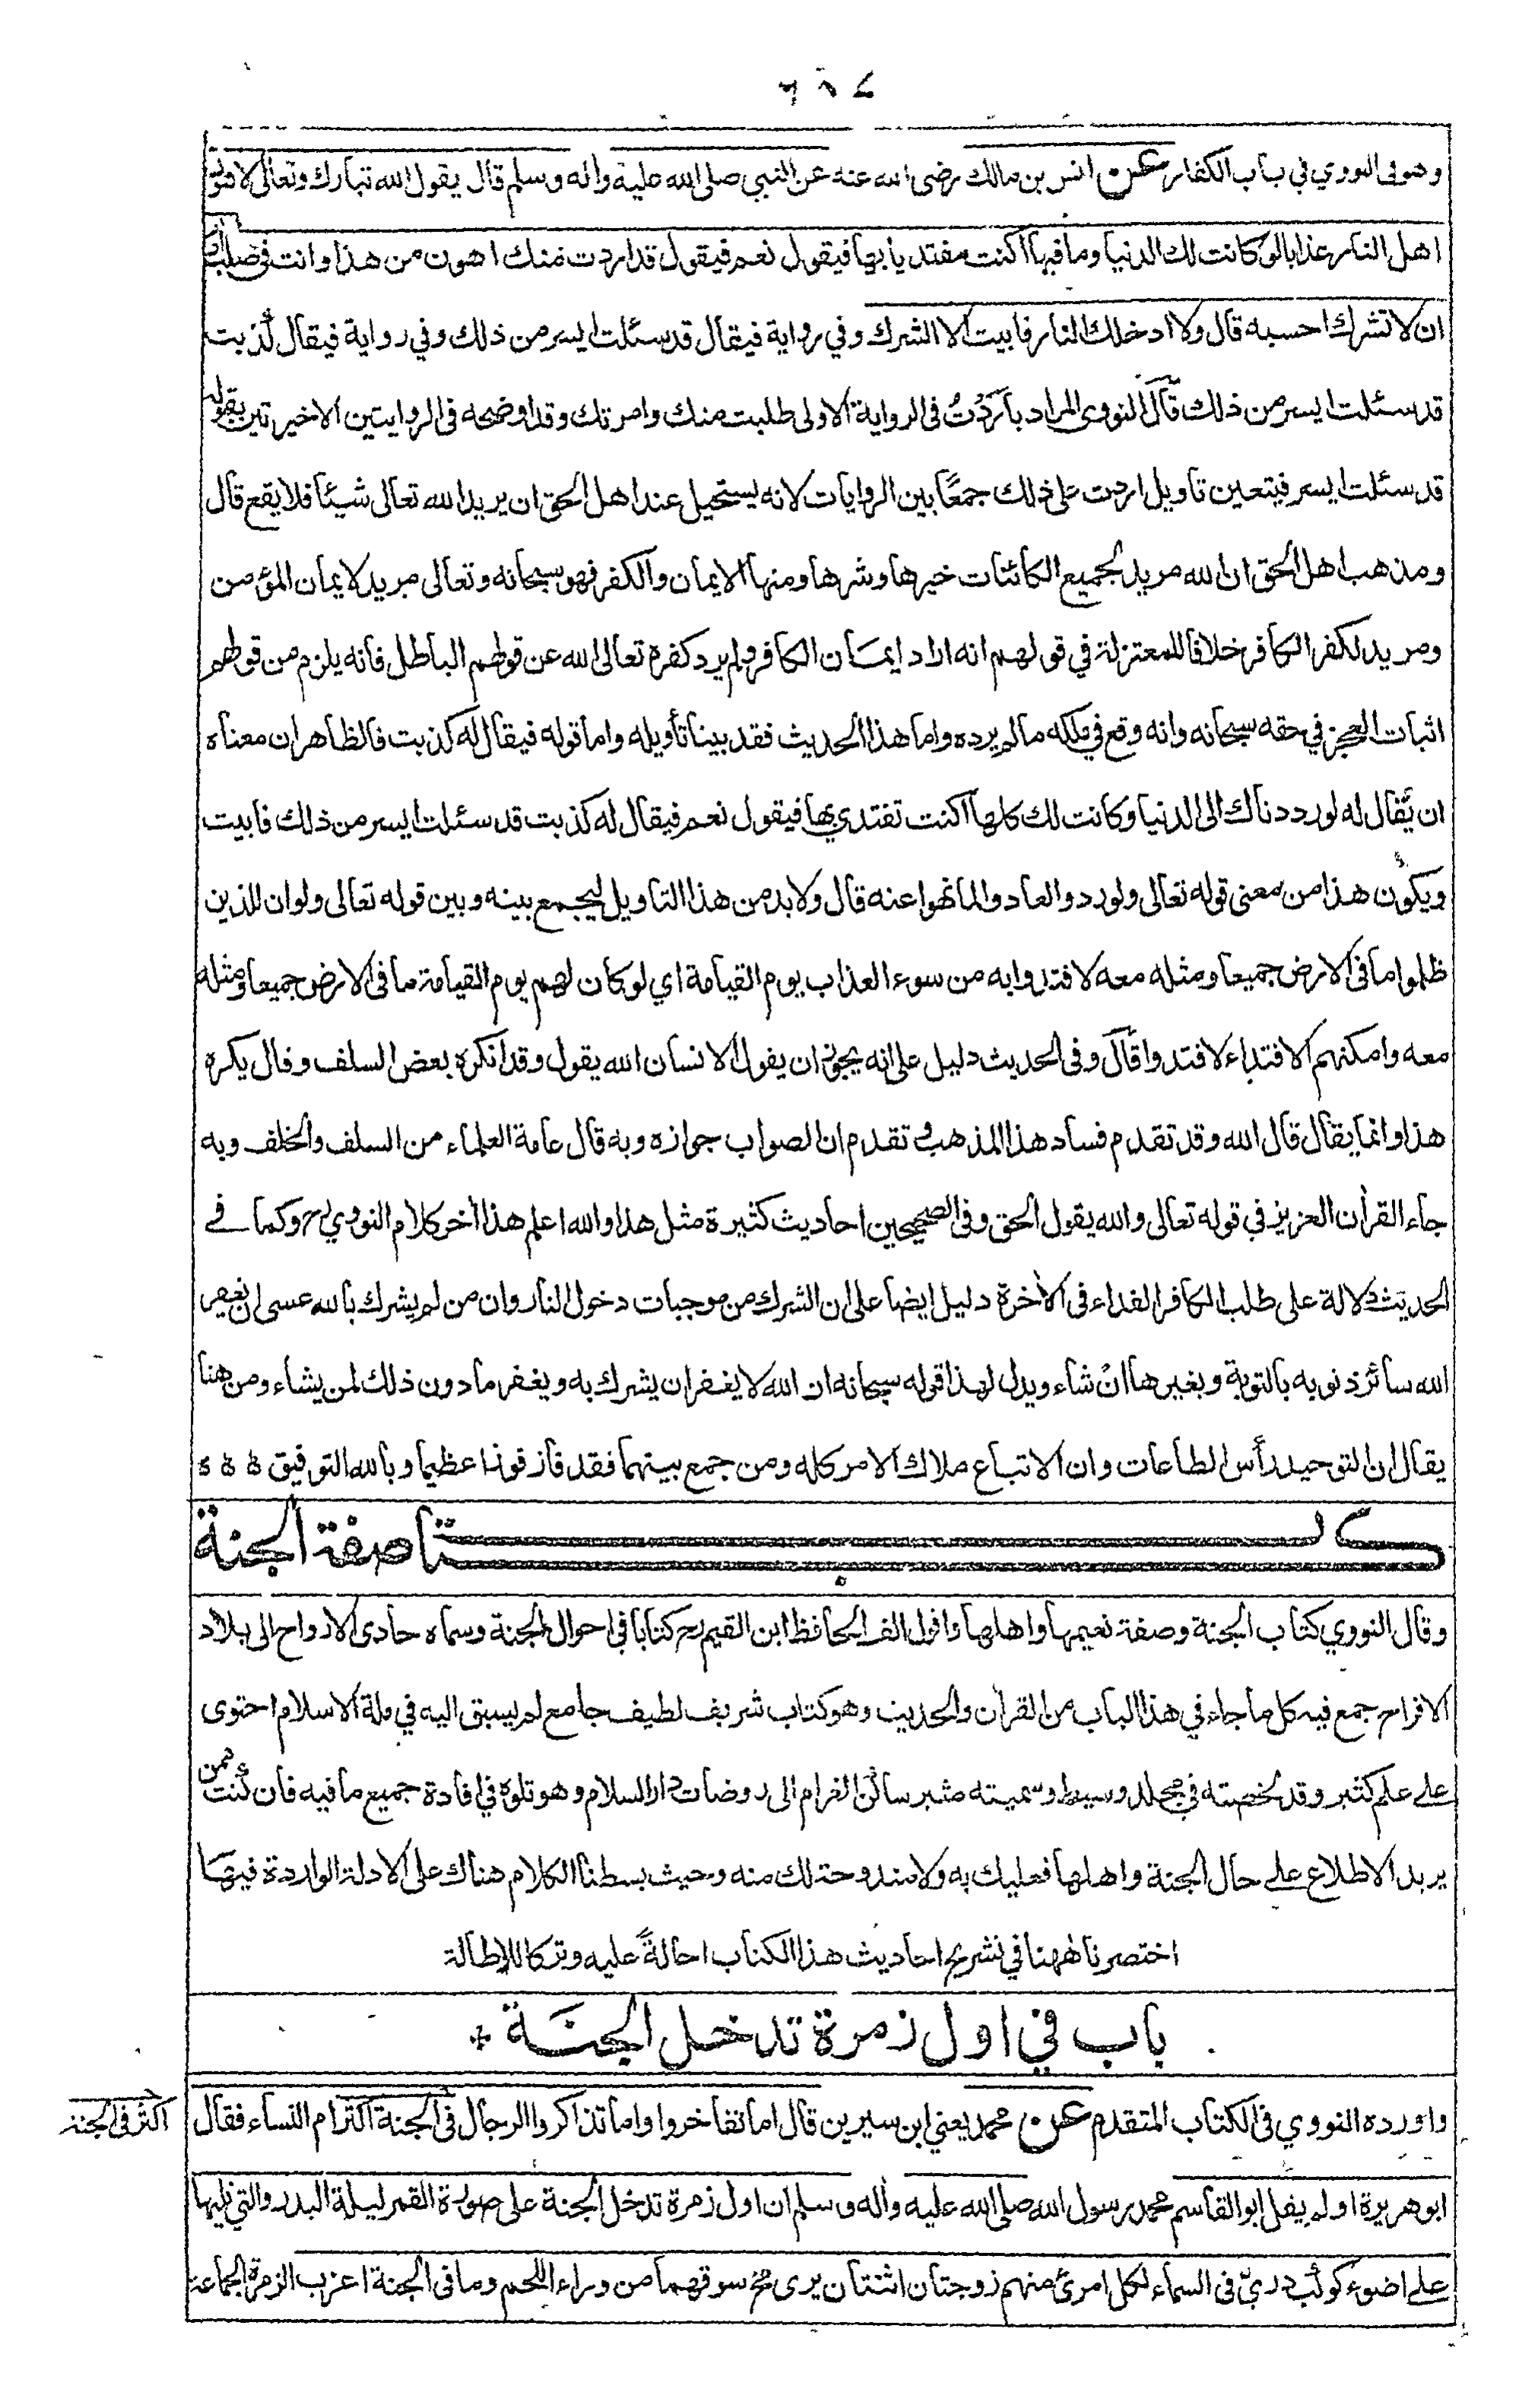 وهو فى النووي في باب الكفار عن انس بن مالك رضى الله عنه عن النبي صلى الله عليه واله وسلم قال يقول الله تبارك وتعالى لاهون
اهل النار عذابا لو كانت لك الدنيا وما فيها اكنت مفتديا بها فيقول نعم فيقول قد اردت منك اهون من هذا وانت في صلب
ان لا تشرك احسبه قال ولا ادخلك النار فابيت الا الشرك وفي رواية فيقال قد سئلت ايسر من ذلك وفي رواية فيقال كذبت
قد سئلت ايسر من ذلك قال النووى المراد بأردْتُ فى الرواية الاولى طلبت منك وامرتك وقد اوضحه فى الروايتين الاخيرتين بقوله
قد سئلت ايسر فيتعين تاويل اردت على ذلك جمعًا بين الروايات لانه يستحيل عند اهل الحق ان يريد الله تعالى شيئا فلا يقع قال
ومذهب اهل الحق ان الله مريد لجميع الكائنات خيرها وشرها ومنها الايمان والكفر فهو سبحانه وتعالى مريد لايمان المؤمن
ومريد لكفر الكافر خلافا للمعتزلة في قولهم انه اراد ايمان الكافر ولم يرد كفره تعالى الله عن قولهم الباطل فانه يلزم من قولهم
اثبات العجز في حقه سبحانه وانه وقع في ملكه ما لم يرده واما هذا الحديث فقد بينا تأويله واما قوله فيقال له كذبت فالظاهر ان معناه
ان يُقال له لو رددناك الى الدنيا وكانت لك كلها اكنت تفتدي بها فيقول نعم فيقال له كذبت قد سئلت ايسر من ذلك فابيت
ويكون هذا من معنى قوله تعالى ولو ردوا لعادوا لما نهوا عنه قال ولا بد من هذا التاويل ليجمع بينه وبين قوله تعالى ولو ان للذين
ظلموا ما فى الارض جميعا ومثله معه لافتدوا به من سوء العذاب يوم القيامة اي لو كان لهم يوم القيامة ما فى الارض جميعا ومثله
معه وامكنهم الافتداء لافتدوا قال وفى الحديث دليل على انه يجوز ان يقول الانسان الله يقول وقد انكره بعض السلف وقال يكره
هذا وانما يقال قال الله وقد تقدم فساد هذا المذهب وتقدم ان الصواب جوازه وبه قال عامة العلماء من السلف والخلف وبه
جاء القرأن العزيز في قوله تعالى والله يقول الحق وفى الصحيحين احاديث كثيرة مثل هذا والله اعلم هذا أخر كلام النووي رح وكما في
الحديث دلالة على طلب الكافر الفداء فى الأخرة دليل ايضا على ان الشرك من موجبات دخول النار وان من لم يشرك بالله عسى ان يغفر
الله سائر ذنوبه بالتوبة وبغيرها انْ شاء ويدل لهذا قوله سبحانه ان الله لا يغفر ان يشرك به ويغفر ما دون ذلك لمن يشاء ومن هنا
يقال ان التوحيد رأس الطاعات وان الاتباع ملاك الامر كله ومن جمع بينهما فقد فاز فوزا عظيما وبالله التوفيق
كتاب صفة الجنة
وقال النووي كتاب الجنة وصفة نعيمها واهلها واقول الف الحافظ ابن القيم رح كتابا في احوال الجنة وسماه حادى الارواح الى بلاد
الافراح جمع فيه كل ما جاء في هذا الباب من القرأن والحديث وهو كتاب شريف لطيف جامع لم يسبق اليه في ملة الاسلام احتوى
على علم كثير وقد لخصته في مجلد وسيط وسميته مثير ساكن الغرام الى روضات دار السلام وهو تلوه في افادة جميع ما فيه فان كنت ممن
يريد الاطلاع على حال الجنة واهلها فعليك به ولا مندوحة لك منه وحيث بسطنا الكلام هناك على الادلة الواردة فيها
اختصرنا ههنا في تشريح احاديث هذا الكتاب احالةً عليه وتركا للإطالة
باب في اول زمرة تدخل الجنة
واورده النووي فى الكتاب المتقدم عن محمد يعني ابن سيرين قال اما تفاخروا واما تذاكروا الرجال فى الجنة اكثر ام النساء فقال
اكثر فى الجنة
ابو هريرة اولم يقل ابو القاسم محمد رسول الله صلى الله عليه وأله وسلم ان اول زمرة تدخل الجنة على صورة القمر ليلة البدر والتي تليها
على اضوء كوكب دريّ فى السماء لكل امرئ منهم زوجتان اثنتان يرى مخ سوقهما من وراء اللحم وما فى الجنة اعزب الزمرة الجماعة